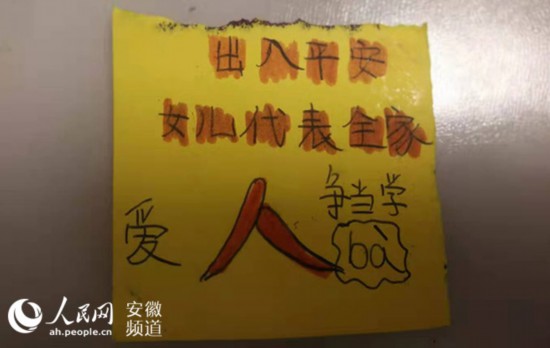 出入平安
女儿代表全家
争当学
爱 人 bà
人民网 安徽
ah.people.cn 频道